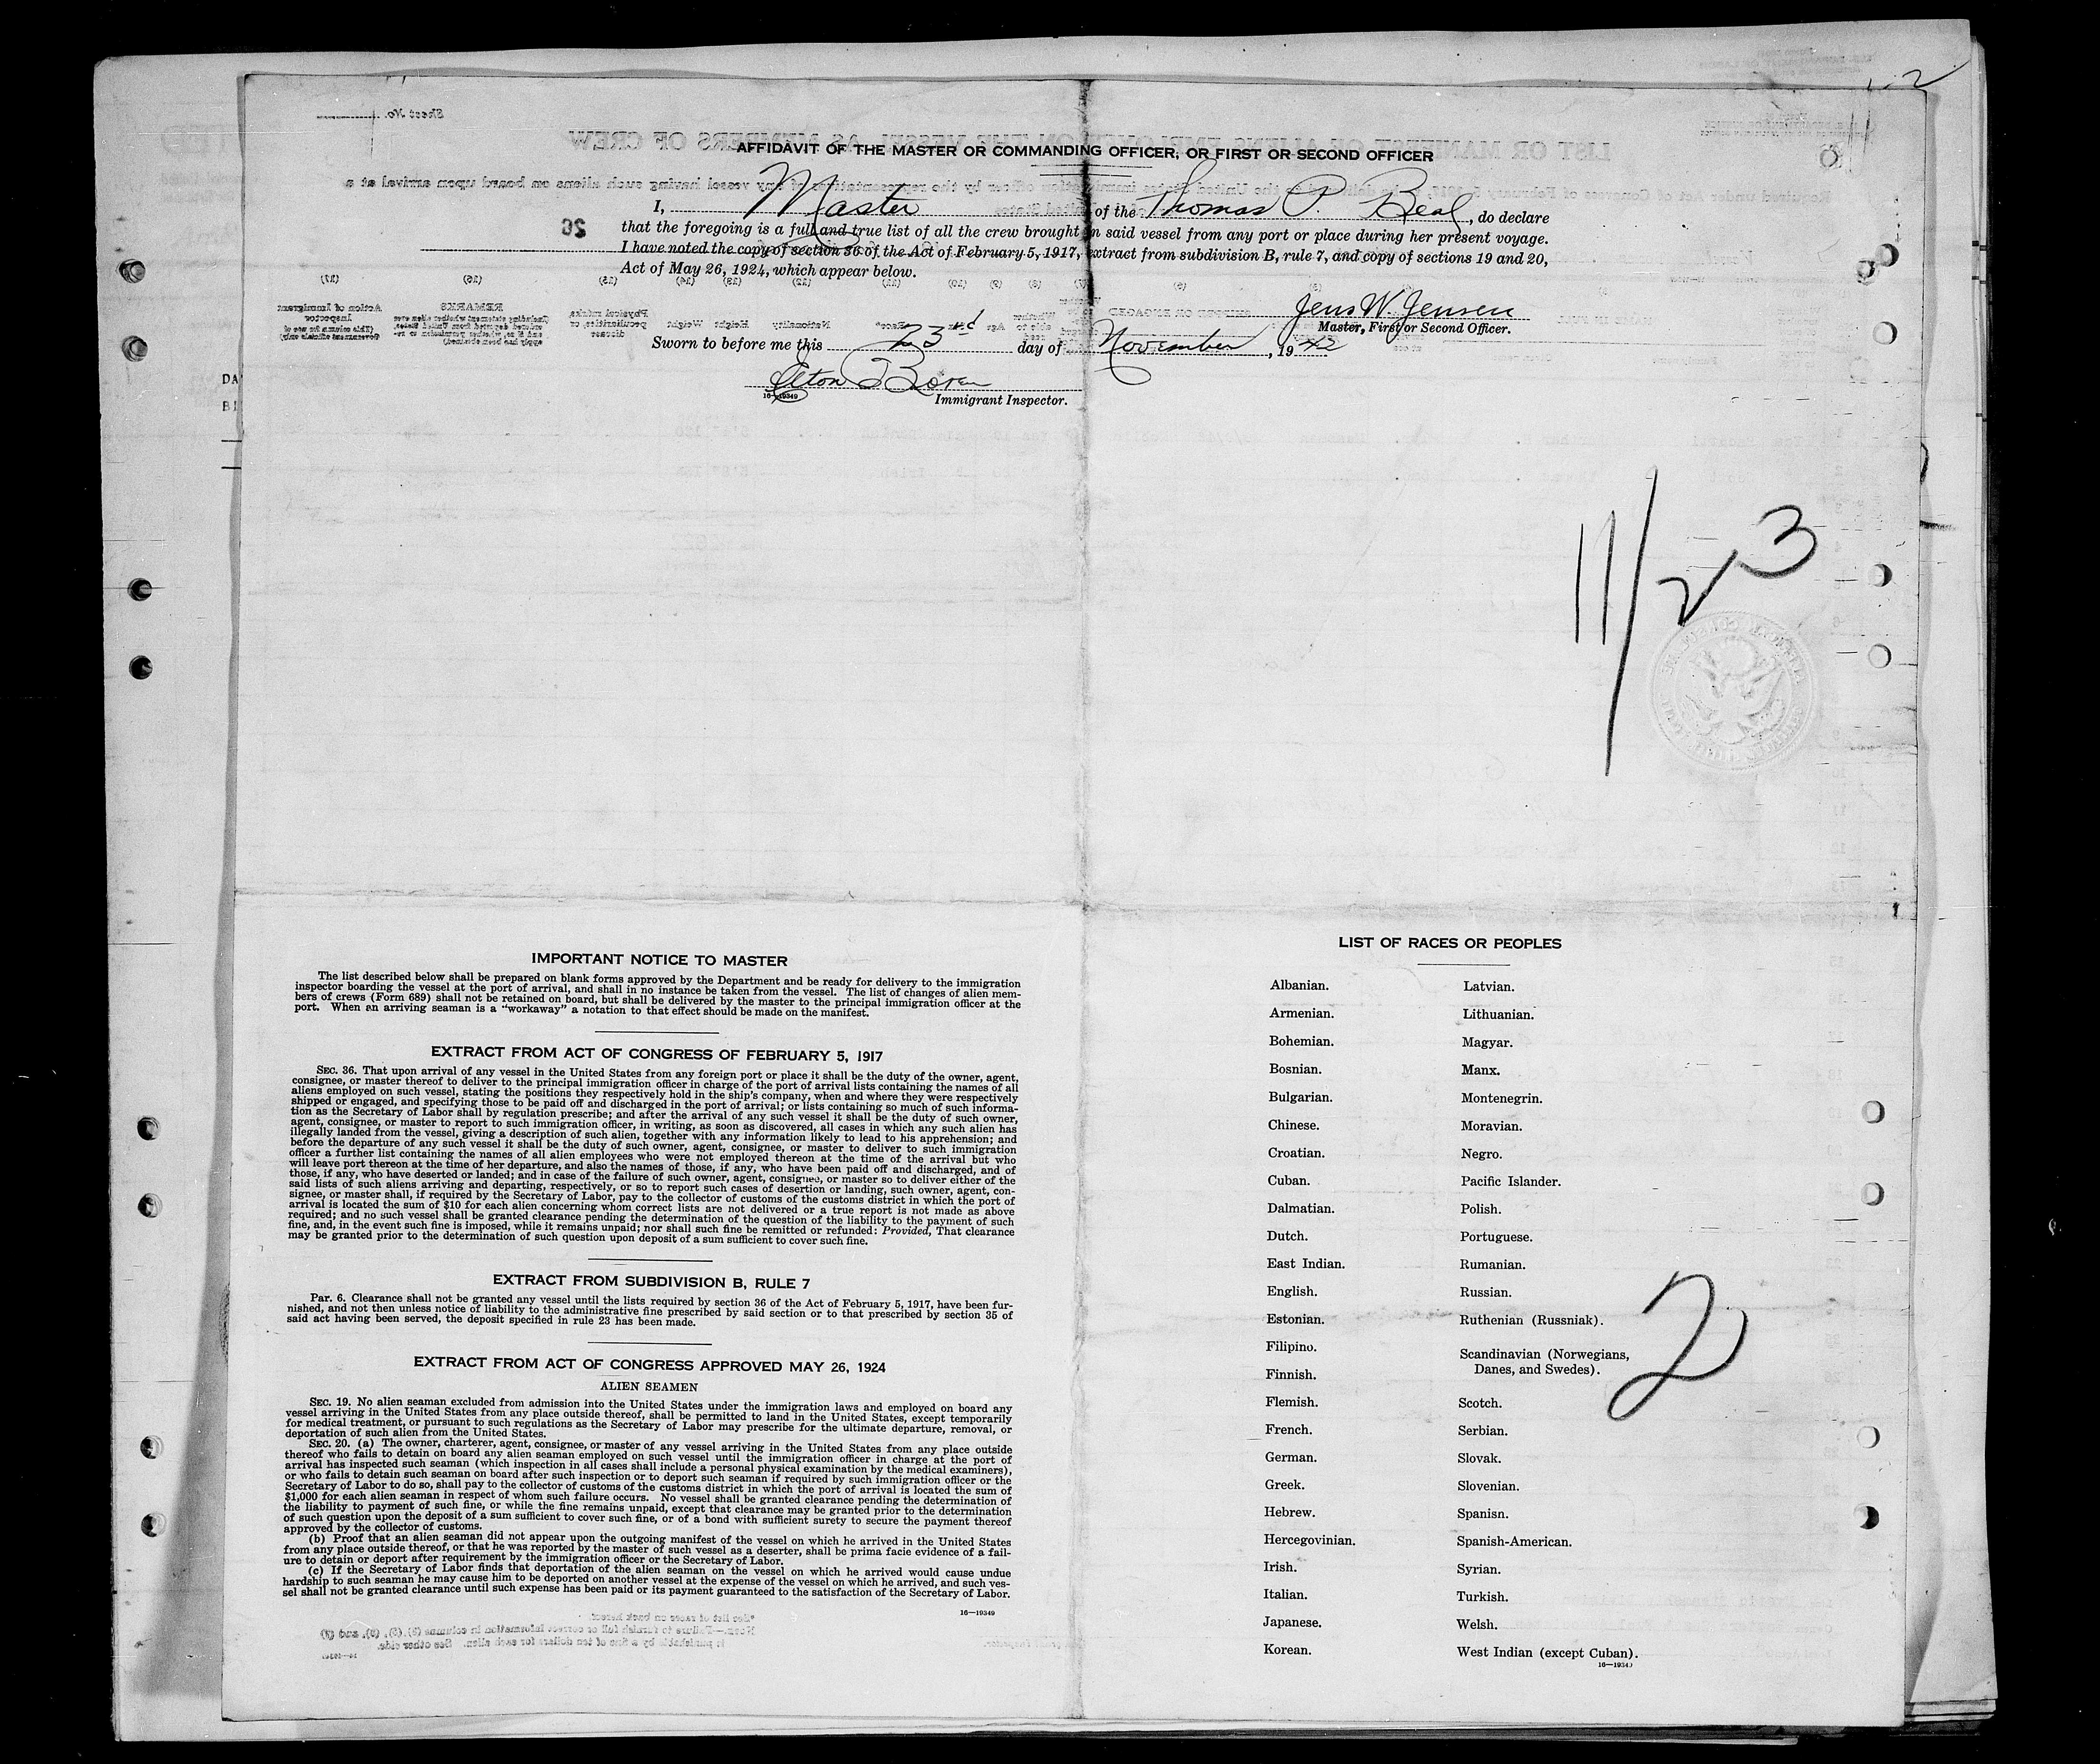 2
AFFIDAVIT OF THE MASTER OR COMMANDING OFFICER, OR FIRST OR SECOND OFFICER
I, Master of the Thomas P. Beal, do declare
that the foregoing is a full and true list of all the crew brought in said vessel from any port or place during her present voyage.
I have noted the copy of section 36 of the Act of February 5, 1917, extract from subdivision B, rule 7, and copy of sections 19 and 20,
Act of May 26, 1924, which appear below.
Jens W. Jensen
Master, First or Second Officer.
Sworn to before me this 23rd day of November, 1942
Elton
16—19349
Immigrant Inspector.
11/23
IMPORTANT NOTICE TO MASTER
The list described below shall be prepared on blank forms approved by the Department and be ready for delivery to the immigration
inspector boarding the vessel at the port of arrival, and shall in no instance be taken from the vessel. The list of changes of alien mem-
bers of crews (Form 689) shall not be retained on board, but shall be delivered by the master to the principal immigration officer at the
port. When an arriving seaman is a "workaway" a notation to that effect should be made on the manifest.
EXTRACT FROM ACT OF CONGRESS OF FEBRUARY 5, 1917
SEC. 36. That upon arrival of any vessel in the United States from any foreign port or place it shall be the duty of the owner, agent,
consignee, or master thereof to deliver to the principal immigration officer in charge of the port of arrival lists containing the names of all
aliens employed on such vessel, stating the positions they respectively hold in the ship's company, when and where they were respectively
shipped or engaged, and specifying those to be paid off and discharged in the port of arrival; or lists containing so much of such informa-
tion as the Secretary of Labor shall by regulation prescribe; and after the arrival of any such vessel it shall be the duty of such owner,
agent, consignee, or master to report to such immigration officer, in writing, as soon as discovered, all cases in which any such alien has
illegally landed from the vessel, giving a description of such alien, together with any information likely to lead to his apprehension; and
before the departure of any such vessel it shall be the duty of such owner, agent, consignee, or master to deliver to such immigration
officer a further list containing the names of all alien employees who were not employed thereon at the time of the arrival but who
will leave port thereon at the time of her departure, and also the names of those, if any, who have been paid off and discharged, and of
those, if any, who have deserted or landed; and in case of the failure of such owner, agent, consignee, or master so to deliver either of the
said lists of such aliens arriving and departing, respectively, or so to report such cases of desertion or landing, such owner, agent, con-
signee, or master shall, if required by the Secretary of Labor, pay to the collector of customs of the customs district in which the port of
arrival is located the sum of $10 for each alien concerning whom correct lists are not delivered or a true report is not made as above
required; and no such vessel shall be granted clearance pending the determination of the question of the liability to the payment of such
fine, and, in the event such fine is imposed, while it remains unpaid; nor shall such fine be remitted or refunded: Provided, That clearance
may be granted prior to the determination of such question upon deposit of a sum sufficient to cover such fine.
EXTRACT FROM SUBDIVISION B, RULE 7
Par. 6. Clearance shall not be granted any vessel until the lists required by section 36 of the Act of February 5, 1917, have been fur-
nished, and not then unless notice of liability to the administrative fine prescribed by said section or to that prescribed by section 35 of
said act having been served, the deposit specified in rule 23 has been made.
EXTRACT FROM ACT OF CONGRESS APPROVED MAY 26, 1924
ALIEN SEAMEN
SEC. 19. No alien seaman excluded from admission into the United States under the immigration laws and employed on board any
vessel arriving in the United States from any place outside thereof, shall be permitted to land in the United States, except temporarily
for medical treatment, or pursuant to such regulations as the Secretary of Labor may prescribe for the ultimate departure, removal, or
deportation of such alien from the United States.
SEC. 20. (a) The owner, charterer, agent, consignee, or master of any vessel arriving in the United States from any place outside
thereof who fails to detain on board any alien seaman employed on such vessel until the immigration officer in charge at the port of
arrival has inspected such seaman (which inspection in all cases shall include a personal physical examination by the medical examiners),
or who fails to detain such seaman on board after such inspection or to deport such seaman if required by such immigration officer or the
Secretary of Labor to do so, shall pay to the collector of customs of the customs district in which the port of arrival is located the sum of
$1,000 for each alien seaman in respect of whom such failure occurs. No vessel shall be granted clearance pending the determination of
the liability to payment of such fine, or while the fine remains unpaid, except that clearance may be granted prior to the determination
of such question upon the deposit of a sum sufficient to cover such fine, or of a bond with sufficient surety to secure the payment thereof
approved by the collector of customs.
(b) Proof that an alien seaman did not appear upon the outgoing manifest of the vessel on which he arrived in the United States
from any place outside thereof, or that he was reported by the master of such vessel as a deserter, shall be prima facie evidence of a fail-
ure to detain or deport after requirement by the immigration officer or the Secretary of Labor.
(c) If the Secretary of Labor finds that deportation of the alien seaman on the vessel on which he arrived would cause undue
hardship to such seaman he may cause him to be deported on another vessel at the expense of the vessel on which he arrived, and such ves-
sel shall not be granted clearance until such expense has been paid or its payment guaranteed to the satisfaction of the Secretary of Labor.
16—19349
LIST OF RACES OR PEOPLES
Albanian.
Armenian.
Bohemian.
Bosnian.
Bulgarian.
Chinese.
Croatian.
Cuban.
Dalmatian.
Dutch.
East Indian.
English.
Estonian.
Filipino.
Finnish.
Flemish.
French.
German.
Greek.
Hebrew.
Hercegovinian.
Irish.
Italian.
Japanese.
Korean.
Latvian.
Lithuanian.
Magyar.
Manx.
Montenegrin.
Moravian.
Negro.
Pacific Islander.
Polish.
Portuguese.
Rumanian.
Russian.
Ruthenian (Russniak).
Scandinavian (Norwegians,
Danes, and Swedes).
Scotch.
Serbian.
Slovak.
Slovenian.
Spanish.
Spanish-American.
Syrian.
Turkish.
Welsh.
West Indian (except Cuban).
16—19349
2